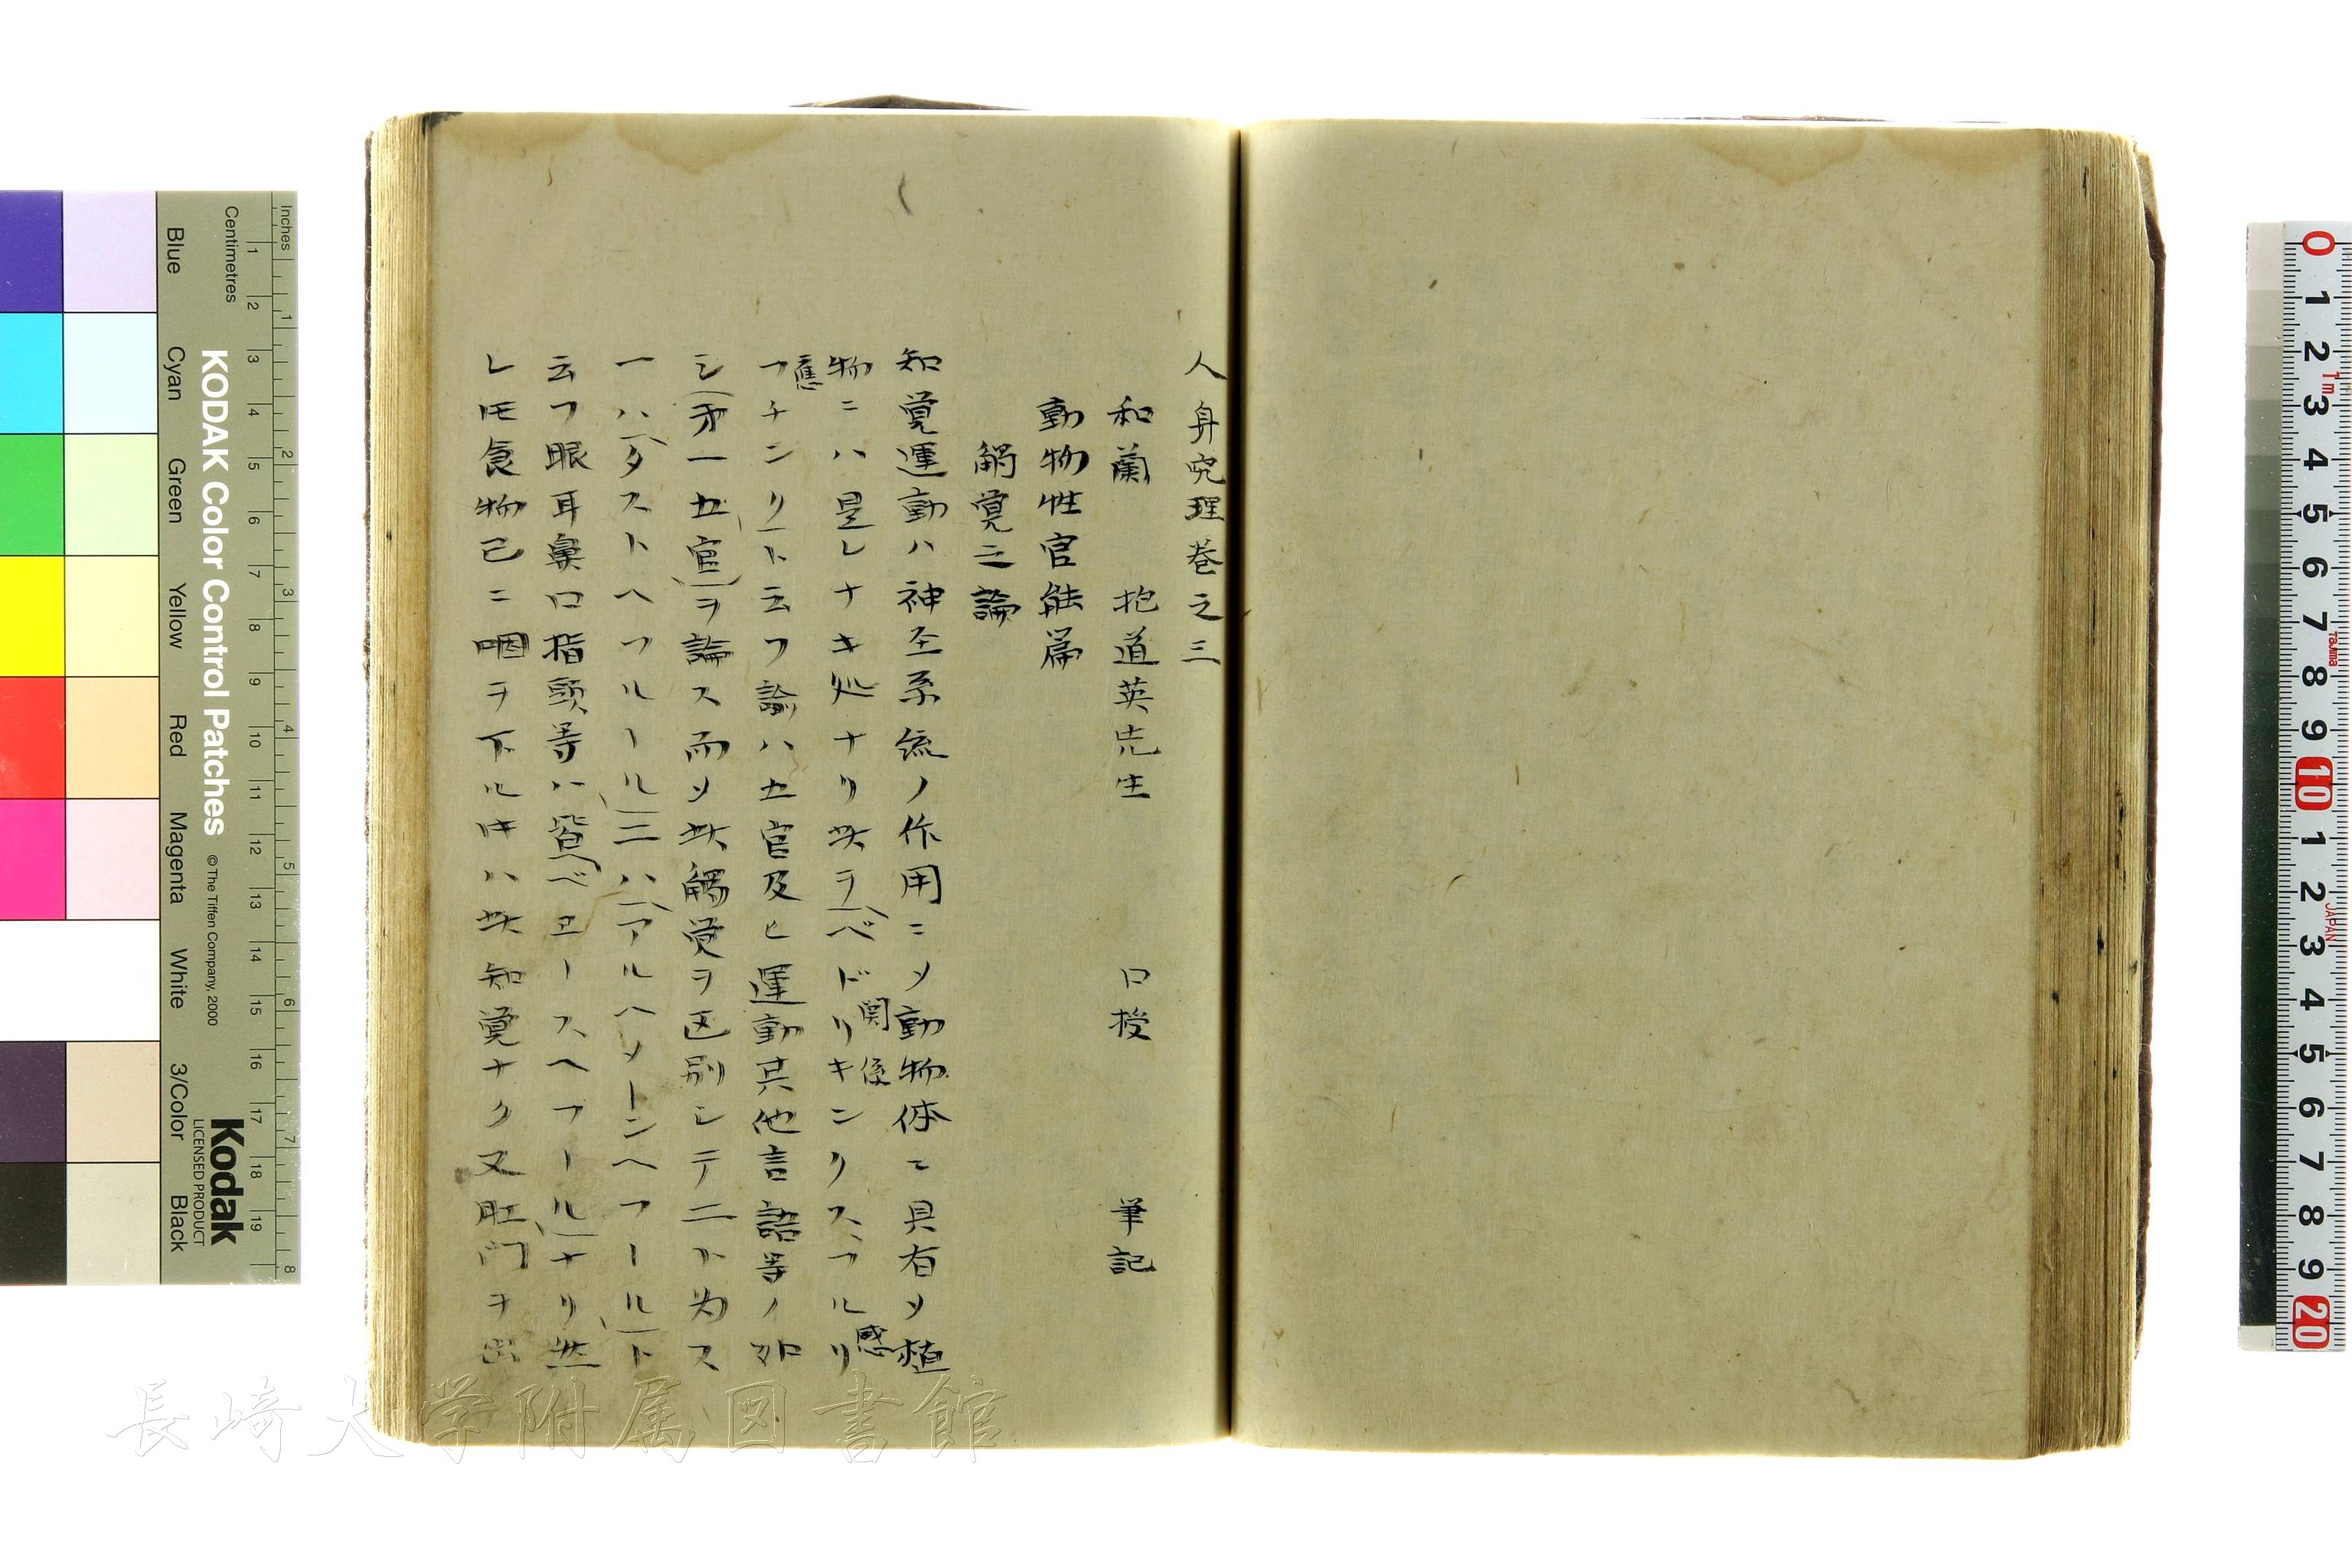 人身究理巻之三
和蘭　抱道英先生　口授　筆記
動物性官能篇
觸覚之論
知覚運動ハ神全系統ノ作用ニソ動物体ニ具有ソ植
物ニハ是レナキ処ナリ此ヲ「ベドリキンクスフルリ
関係
感
フチンリ」ト云フ諭ハ五官及ヒ運動其他言語等ノ如
應
シ（才一五官）ヲ論ス而ソ此觸覚ヲ区別シテ二ト为ス
一ハ「タストヘフルール」二ハ「アルヘメーンヘフールト
云フ眼耳鼻口指頭等ハ皆「ベエースヘフール」ナリ然
レ圧食物已ニ咽ヲ下ル時ハ此知覚ナク又肛門ヲ出
長崎大学附属図書館
KODAK Color Control Patches
© The Tiffen Company, 2000
Kodak
LICENSED PRODUCT
Inches
Centimetres
1 2 3 4 5 6 7 8
1 2 3 4 5 6 7 8 9 10 11 12 13 14 15 16 17 18 19
Blue Cyan Green Yellow Red Magenta White 3/Color Black
0 1 2 3 4 5 6 7 8 9 10 1 2 3 4 5 6 7 8 9 20
1m
Tajima
JAPAN